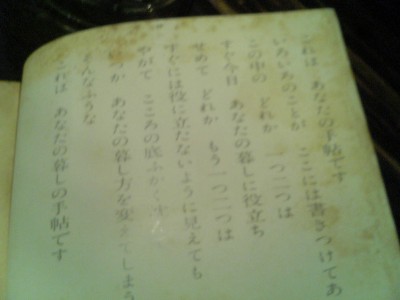 これは あなたの手帖です
いろいろのことが ここには書きつけてあ
この中の どれか 一つ二つは
すぐ今日 あなたの暮しに役立ち
せめて どれか もう一つ二つは
すぐには役に立たないように見えても
やがて こころの底ふかく沈んで
いつか あなたの暮し方を変えてしまう
そんなふうな
これは あなたの暮しの手帖です